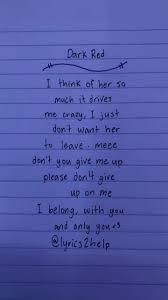 Dark Red
I think of her so
much it drives
me crazy, I just
don't want her
to leave. meee
don't you give me up
please don't give
up on me
I belong, with you
and only you
@lyrics2help